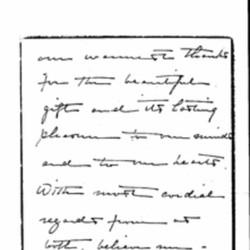 our warmest thanks
for the beautiful
gift and its lasting
pleasure to our minds
and to our hearts.
With most cordial
regards from us
both, believe me -